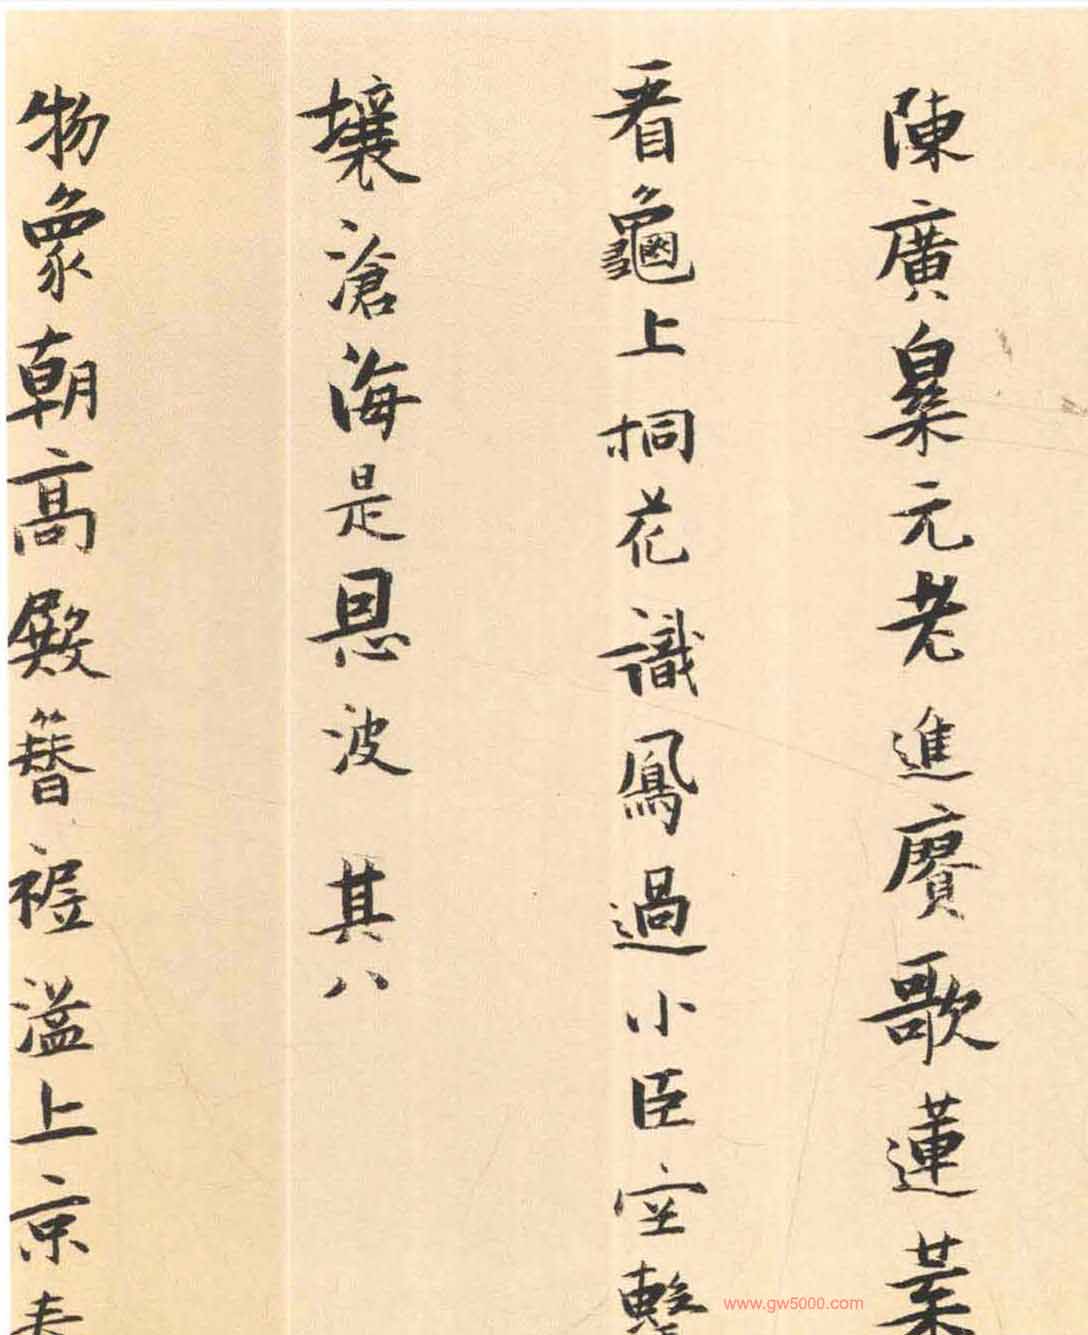 陳廣皋元老進賡歌蓮葉
看龜上桐花識鳳過小臣空擊
壤滄海是恩波 其八
物象朝高殿簪裾溢上京春
www.gw5000.com